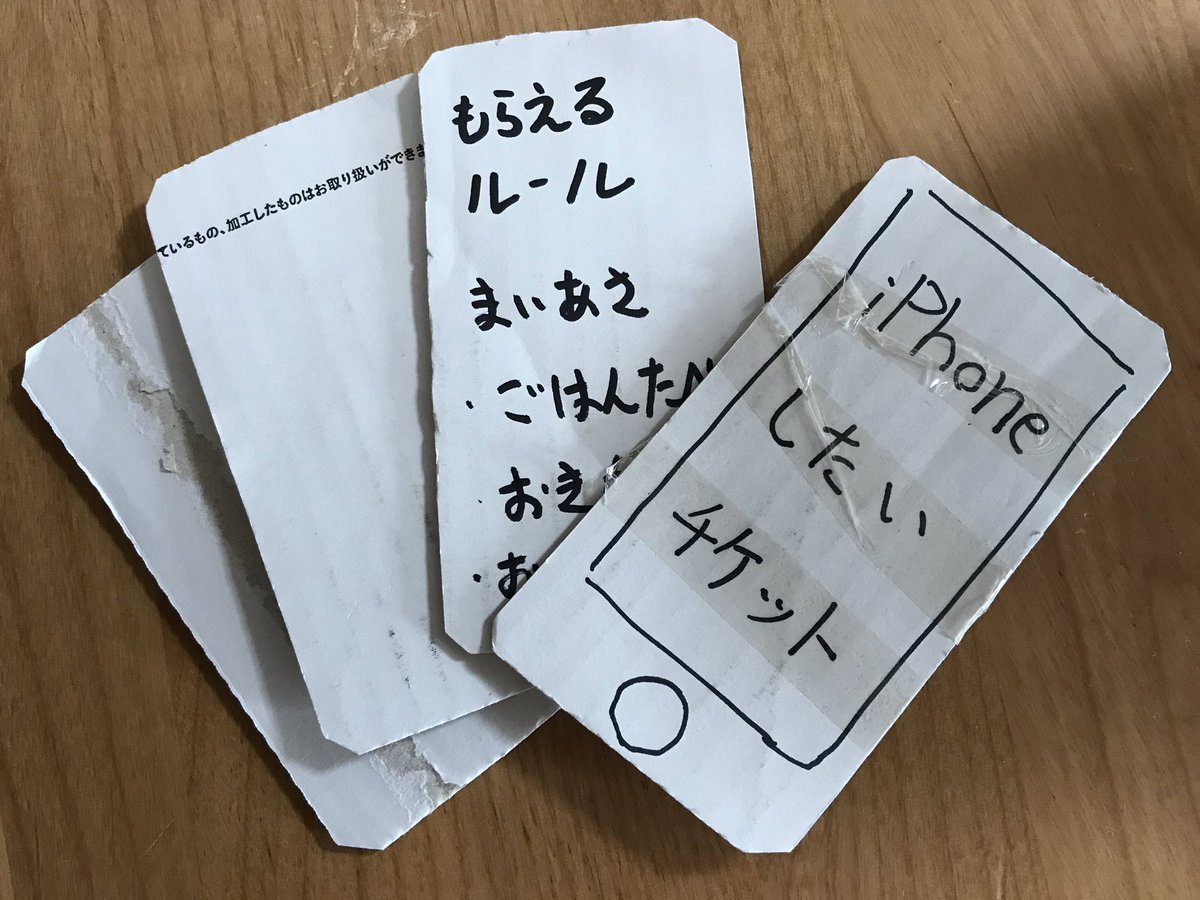 ているもの、加工したものはお取り扱いができま
もらえる
ルール
まいあさ
・ごはんた
・おき
・お
iPhone
したい
チケット